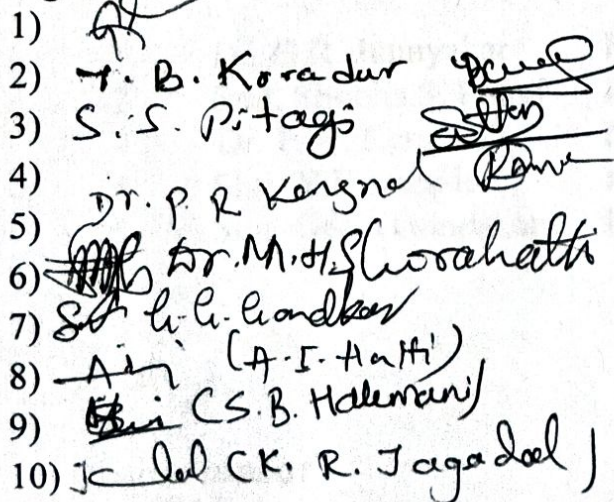 1)
2) Y. B. Koradur
3) S. S. Pitagi
4) Dr. P. R Kengnal
5)
6) Dr. M. H. Shorahatti
7)
8) (A. I. Hatti)
9) (S. B. Halemani)
10) (K. R. Jagadal)